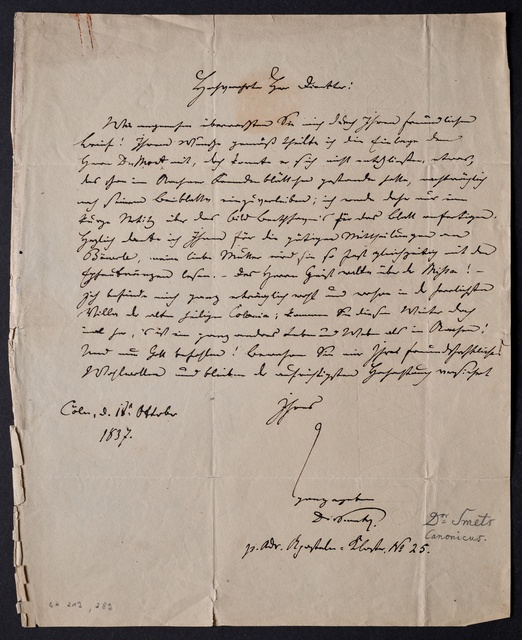 Hochverehrter Herr Direktor!
Wie angenehm überraschten Sie mich durch Ihren freundlichen
Brief! Ihrem Wunsche gemäß theilte ich die Einlage dem
Herrn DuMont mit, doch konnte er sich nicht entschließen, etwas,
das schon in Aachener gestanden hatte, nachträglich
noch seinem Beiblatte einzuverleiben; ich werde daher nur eine
kurze Notiz über das Bild für das Blatt anfertigen.
Herzlich danke ich Ihnen für die gütigen Mittheilungen an
meine liebe Mutter wird sie so fast gleichzeitig mit den
lesen. – Des Herrn Geist walte über der Mission! –
Ich befinde mich ganz erträglich wohl und wohne in der herrlichsten
Villa der alten heiligen Colonia; kommen Sie diesen Winter doch
mal her, 's ist ein ganz anderes Leben und Weben als in Aachen!
Und nun Gott befohlen! Bewahren Sie mir Ihr freundschaftliches
Wohlwollen und bleiben der aufrichtigsten Hochachtung versichert
Ihres
Cöln, d. 18. Oktober
1837.
ganz ergebenen
Dr Smets.
p. Adr. Aposteln-Kloster, No 25.
Dr. Smets
Canonicus.